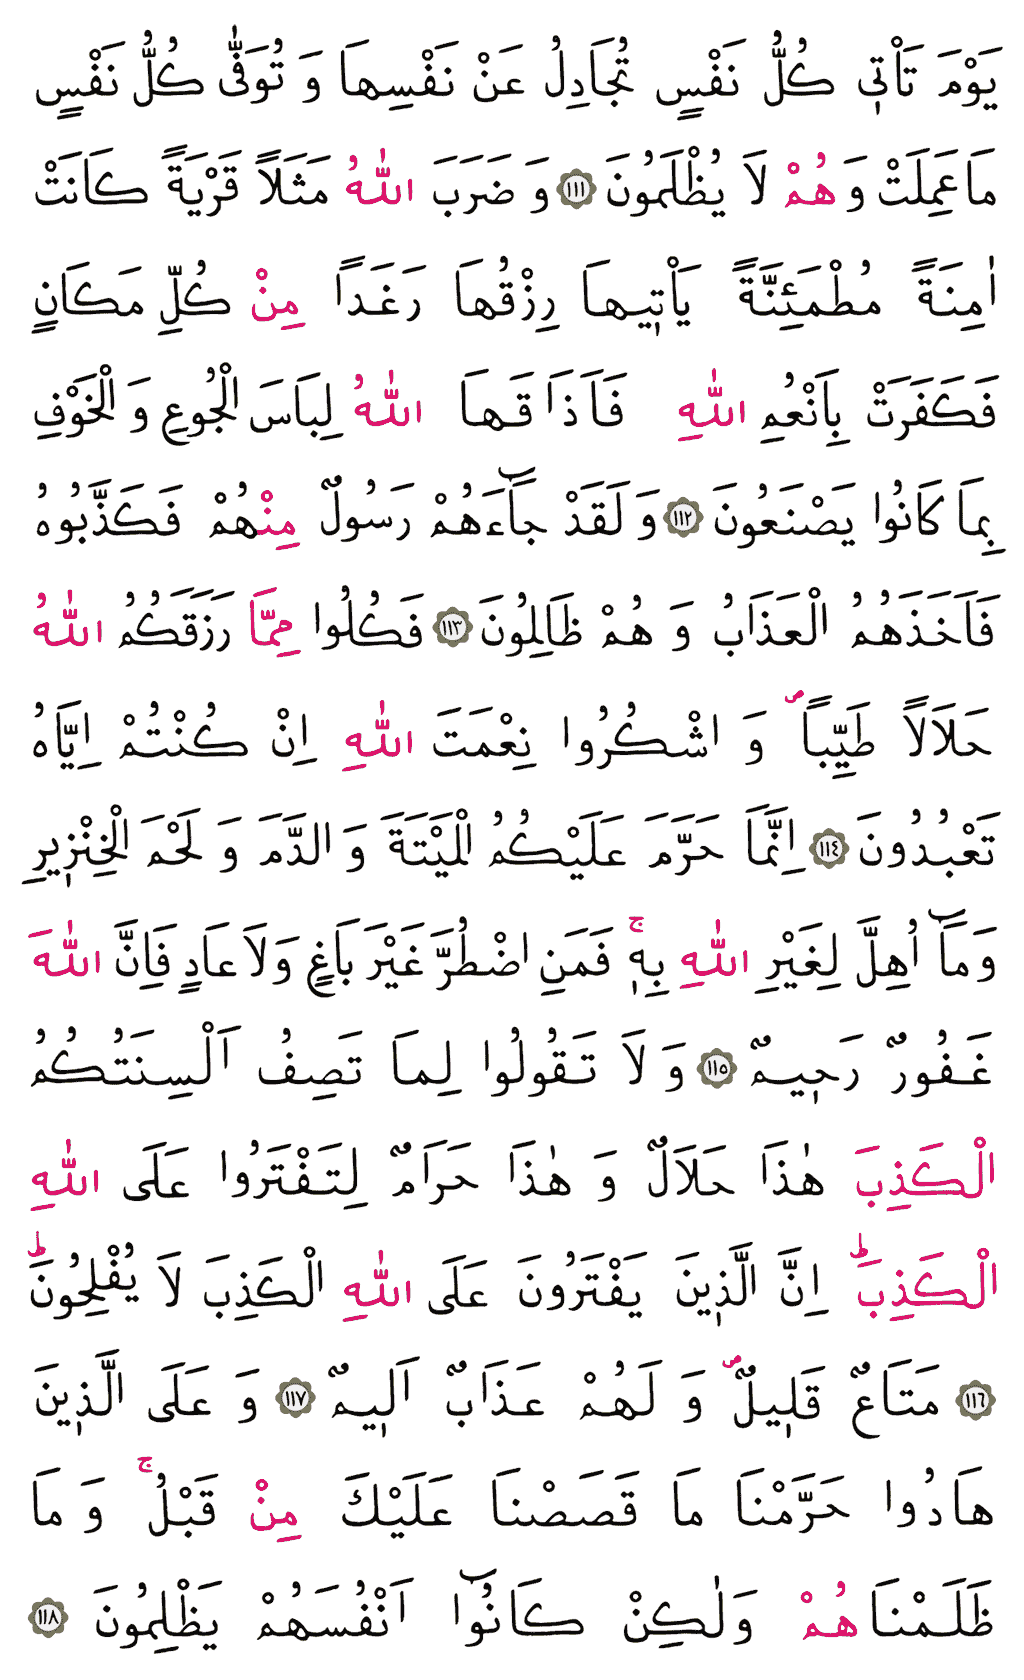 يَوْمَ تَاْتٖي كُلُّ نَفْسٍ تُجَادِلُ عَنْ نَفْسِهَا وَ تُوَفّٰى كُلُّ نَفْسٍ
مَا عَمِلَتْ وَ هُمْ لَا يُظْلَمُونَ ﴿١١١﴾ وَ ضَرَبَ اللّٰهُ مَثَلًا قَرْيَةً كَانَتْ
اٰمِنَةً مُطْمَئِنَّةً يَاْتٖيهَا رِزْقُهَا رَغَدًا مِنْ كُلِّ مَكَانٍ
فَكَفَرَتْ بِاَنْعُمِ اللّٰهِ فَاَذَاقَهَا اللّٰهُ لِبَاسَ الْجُوعِ وَ الْخَوْفِ
بِمَا كَانُوا يَصْنَعُونَ ﴿١١٢﴾ وَ لَقَدْ جَٓاءَهُمْ رَسُولٌ مِنْهُمْ فَكَذَّبُوهُ
فَاَخَذَهُمُ الْعَذَابُ وَ هُمْ ظَالِمُونَ ﴿١١٣﴾ فَكُلُوا مِمَّا رَزَقَكُمُ اللّٰهُ
حَلَالًا طَيِّبًاۖ وَ اشْكُرُوا نِعْمَتَ اللّٰهِ اِنْ كُنْتُمْ اِيَّاهُ
تَعْبُدُونَ ﴿١١٤﴾ اِنَّمَا حَرَّمَ عَلَيْكُمُ الْمَيْتَةَ وَ الدَّمَ وَ لَحْمَ الْخِنْزٖيرِ
وَ مَٓا اُهِلَّ لِغَيْرِ اللّٰهِ بِهٖۚ فَمَنِ اضْطُرَّ غَيْرَ بَاغٍ وَ لَا عَادٍ فَاِنَّ اللّٰهَ
غَفُورٌ رَحٖيمٌ ﴿١١٥﴾ وَ لَا تَقُولُوا لِمَا تَصِفُ اَلْسِنَتُكُمُ
الْكَذِبَ هٰذَا حَلَالٌ وَ هٰذَا حَرَامٌ لِتَفْتَرُوا عَلَى اللّٰهِ
الْكَذِبَؕ اِنَّ الَّذٖينَ يَفْتَرُونَ عَلَى اللّٰهِ الْكَذِبَ لَا يُفْلِحُونَؕ
﴿١١٦﴾ مَتَاعٌ قَلٖيلٌۖ وَ لَهُمْ عَذَابٌ اَلٖيمٌ ﴿١١٧﴾ وَ عَلَى الَّذٖينَ
هَادُوا حَرَّمْنَا مَا قَصَصْنَا عَلَيْكَ مِنْ قَبْلُۚ وَ مَا
ظَلَمْنَاهُمْ وَلٰكِنْ كَانُٓوا اَنْفُسَهُمْ يَظْلِمُونَ ﴿١١٨﴾